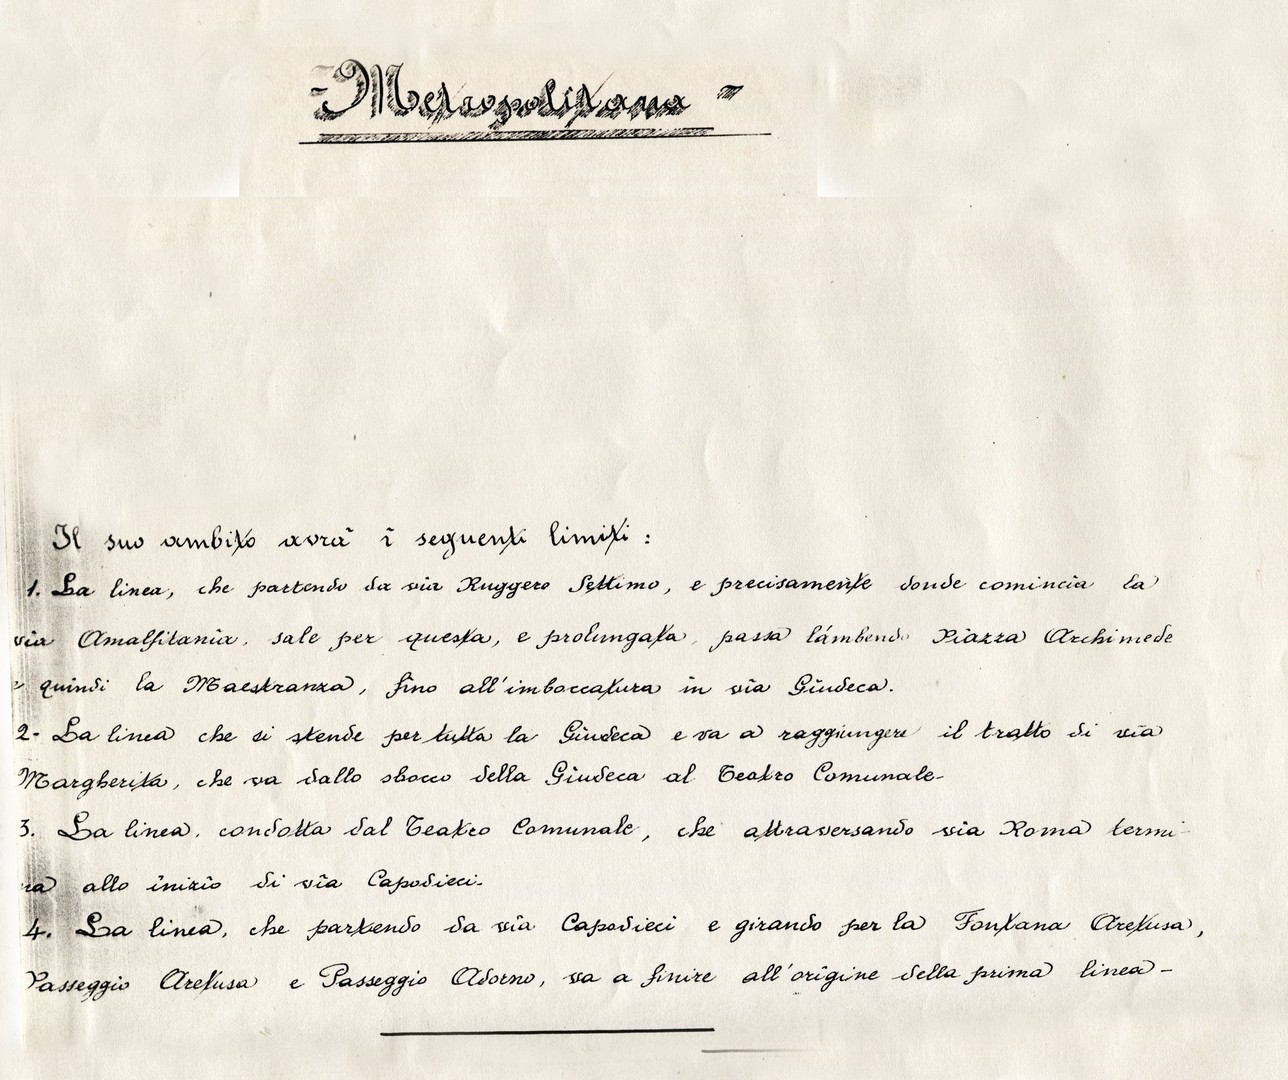 - Metropolitana -
Il suo ambito avrà i seguenti limiti :
1. La linea, che partendo da via Ruggero Settimo, e precisamente donde comincia la
via Amalfitania, sale per questa, e prolungata, passa lambendo Piazza Archimede
e quindi la Maestranza, fino all'imboccatura in via Giudeca.
2- La linea che si stende per tutta la Giudeca e va a raggiungere il tratto di via
Margherita, che va dallo sbocco della Giudeca al Teatro Comunale-
3. La linea, condotta dal Teatro Comunale, che attraversando via Roma termi-
na allo inizio di via Capodieci-
4. La linea, che partendo da via Capodieci e girando per la Fontana Aretusa,
Passeggio Aretusa e Passeggio Adorno, va a finire all'origine della prima linea-